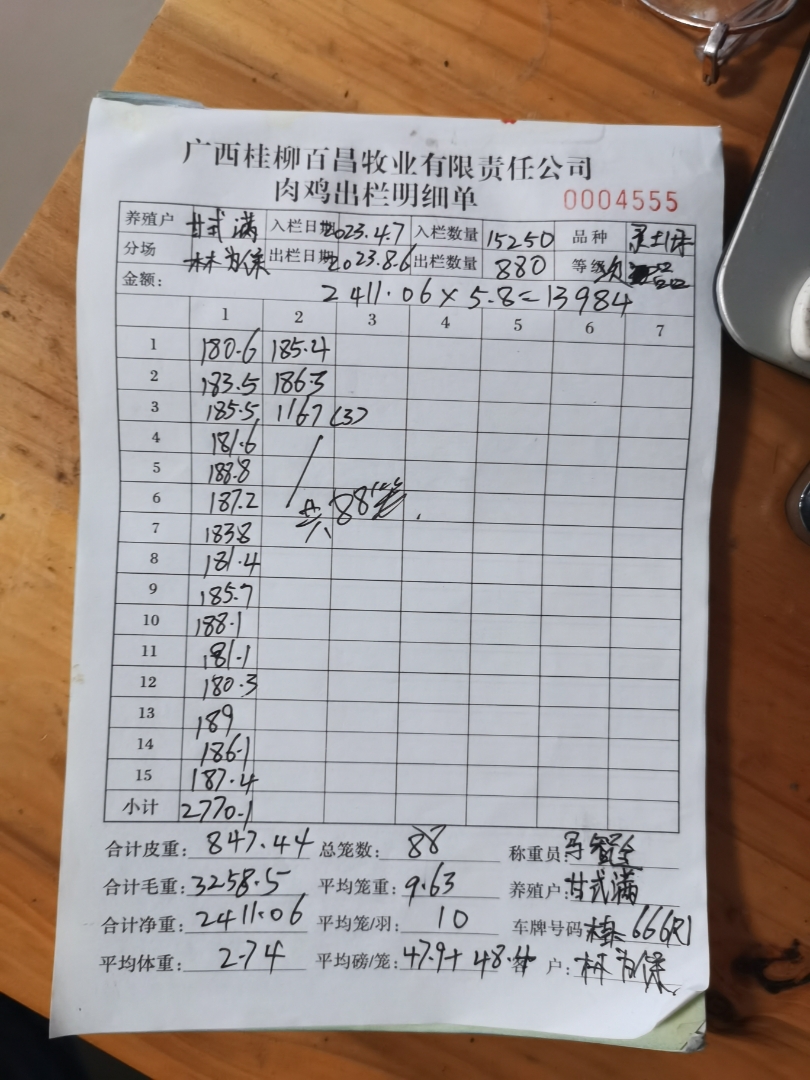 广西桂柳百昌牧业有限责任公司
肉鸡出栏明细单 0004555
养殖户 甘式满 入栏日期 2023.4.7 入栏数量 15250 品种
分场 林为保 出栏日期 2023.8.6 出栏数量 880 等级 次品
金额: 2411.06×5.8=13984
1 2 3 4 5 6 7
1 180.6 185.4
2 183.5 186.3
3 185.5 116.7(3)
4 181.6
5 188.8
6 187.2 共88笼.
7 183.8
8 181.4
9 185.7
10 188.1
11 181.1
12 180.3
13 189
14 186.1
15 187.4
小计 2770.1
合计皮重: 847.44 总笼数: 88 称重员:
合计毛重: 3258.5 平均笼重: 9.63 养殖户: 甘式满
合计净重: 2411.06 平均笼/羽: 10 车牌号码 桂 666R1
平均体重: 2.74 平均磅/笼: 47.9+48.4 客 户: 林为保